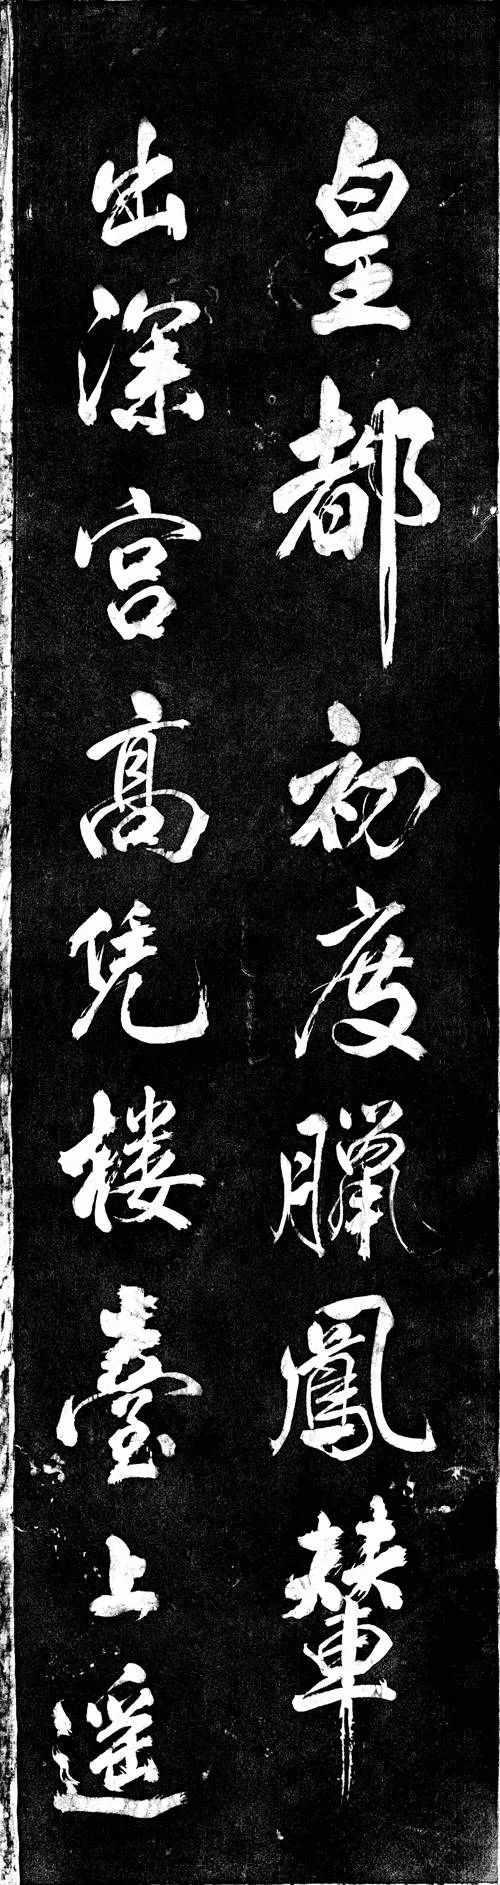 皇都初度臘鳳輦
出深宫髙凭楼臺上遥